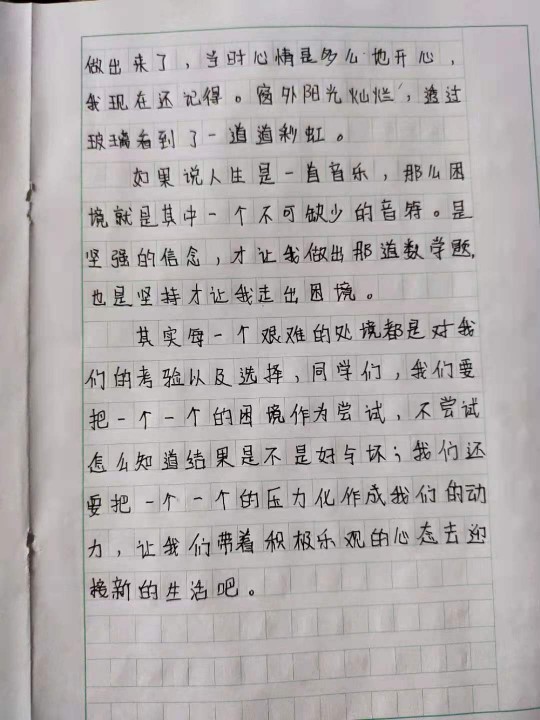 做出来了，当时心情是多么地开心，
我现在还记得。窗外阳光灿烂，透过
玻璃看到了一道道彩虹。
如果说人生是一首音乐，那么困
境就是其中一个不可缺少的音符。是
坚强的信念，才让我做出那道数学题，
也是坚持才让我走出困境。
其实每一个艰难的处境都是对我
们的考验以及选择，同学们，我们要
把一个一个的困境作为尝试，不尝试
怎么知道结果是不是好与坏；我们还
要把一个一个的压力化作成我们的动
力，让我们带着积极乐观的心态去迎
接新的生活吧。